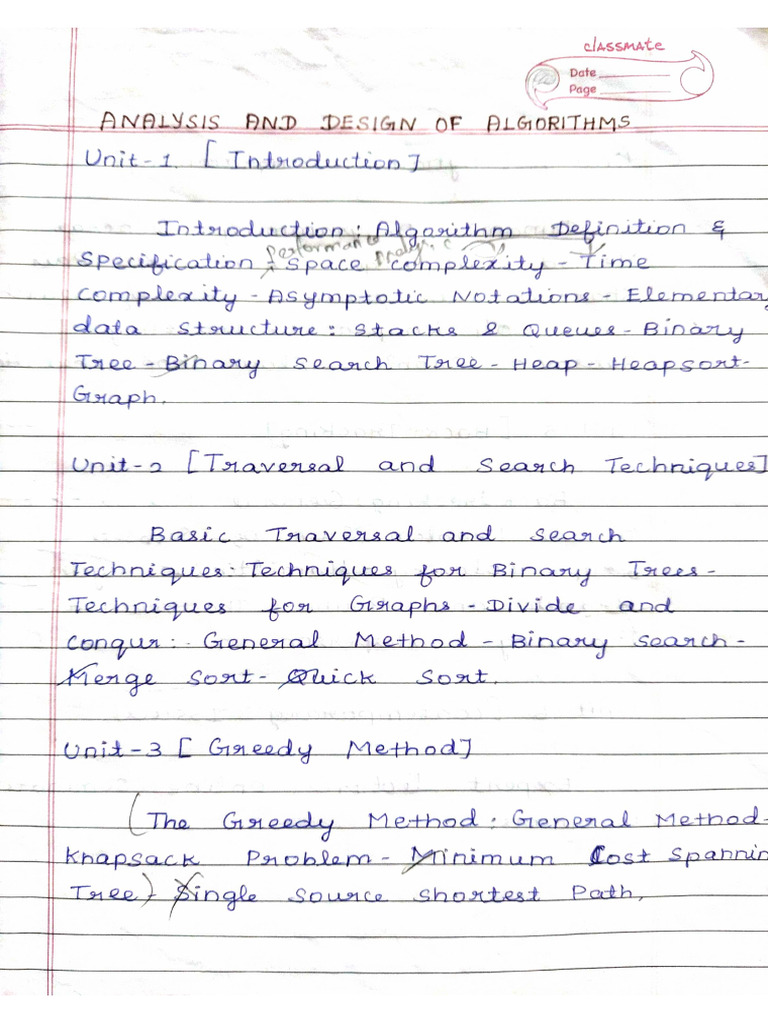 classmate
Date
Page
ANALYSIS AND DESIGN OF ALGORITHMS
Unit-1. [Introduction]
Introduction: Algorithm Definition &
Performance Analysis
Specification - Space complexity - Time
complexity - Asymptotic Notations - Elementary
data structure: Stacks & Queues - Binary
Tree - Binary Search Tree - Heap - Heapsort -
Graph.
Unit-2 [Traversal and Search Techniques]
Basic Traversal and Search
Techniques: Techniques for Binary Trees -
Techniques for Graphs - Divide and
conqur: General Method - Binary Search -
Merge Sort - Quick Sort.
Unit-3 [Greedy Method]
(The Greedy Method: General Method -
Knapsack Problem - Minimum Cost Spannin
Tree) - Single Source Shortest Path,